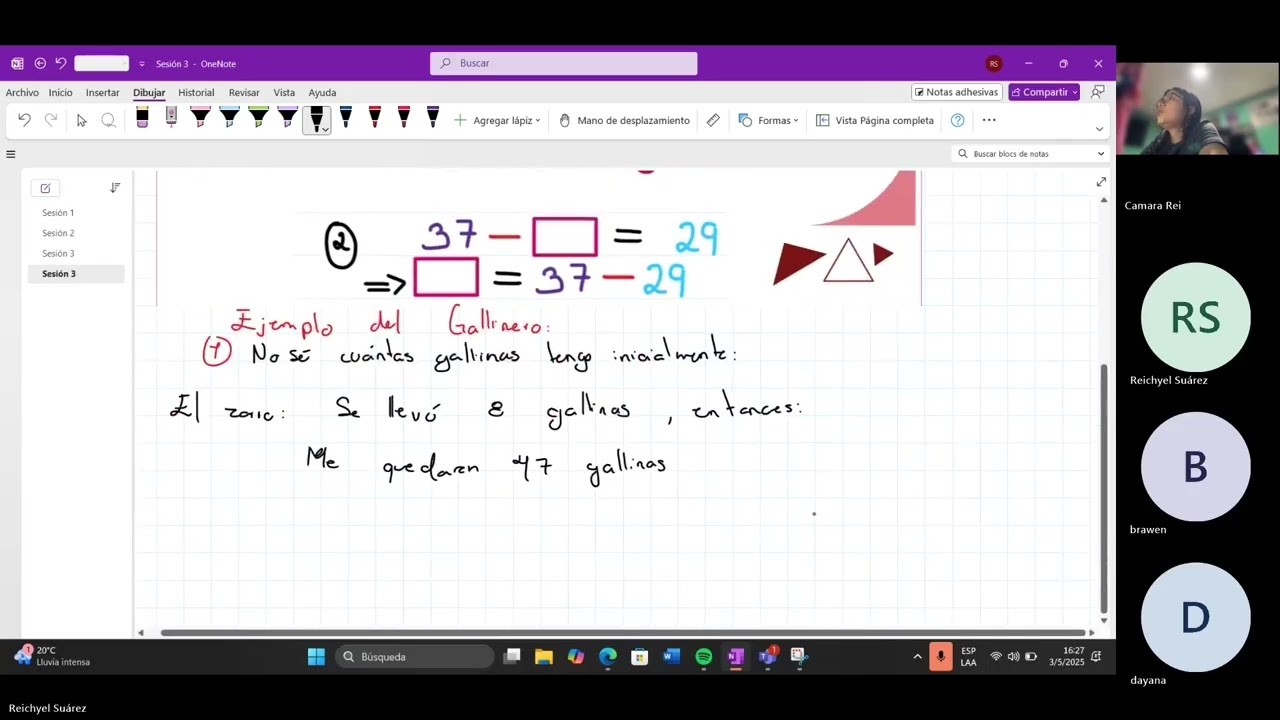 Sesión 3 - OneNote
Buscar
RS
Archivo Inicio Insertar Dibujar Historial Revisar Vista Ayuda
Notas adhesivas
Compartir
Agregar lápiz
Mano de desplazamiento
Formas
Vista Página completa
Buscar blocs de notas
Sesión 1
Sesión 2
Sesión 3
Sesión 3
2 37 - = 29
=> = 37 - 29
Ejemplo del Gallinero:
1 No sé cuántas gallinas tengo inicialmente:
El zorro: Se llevó 8 gallinas, entonces:
Me quedaron 47 gallinas
Camara Rei
RS
Reichyel Suárez
B
brawen
D
dayana
1
20°C
Lluvia intensa
Búsqueda
1
ESP
LAA
16:27
3/5/2025
Reichyel Suárez